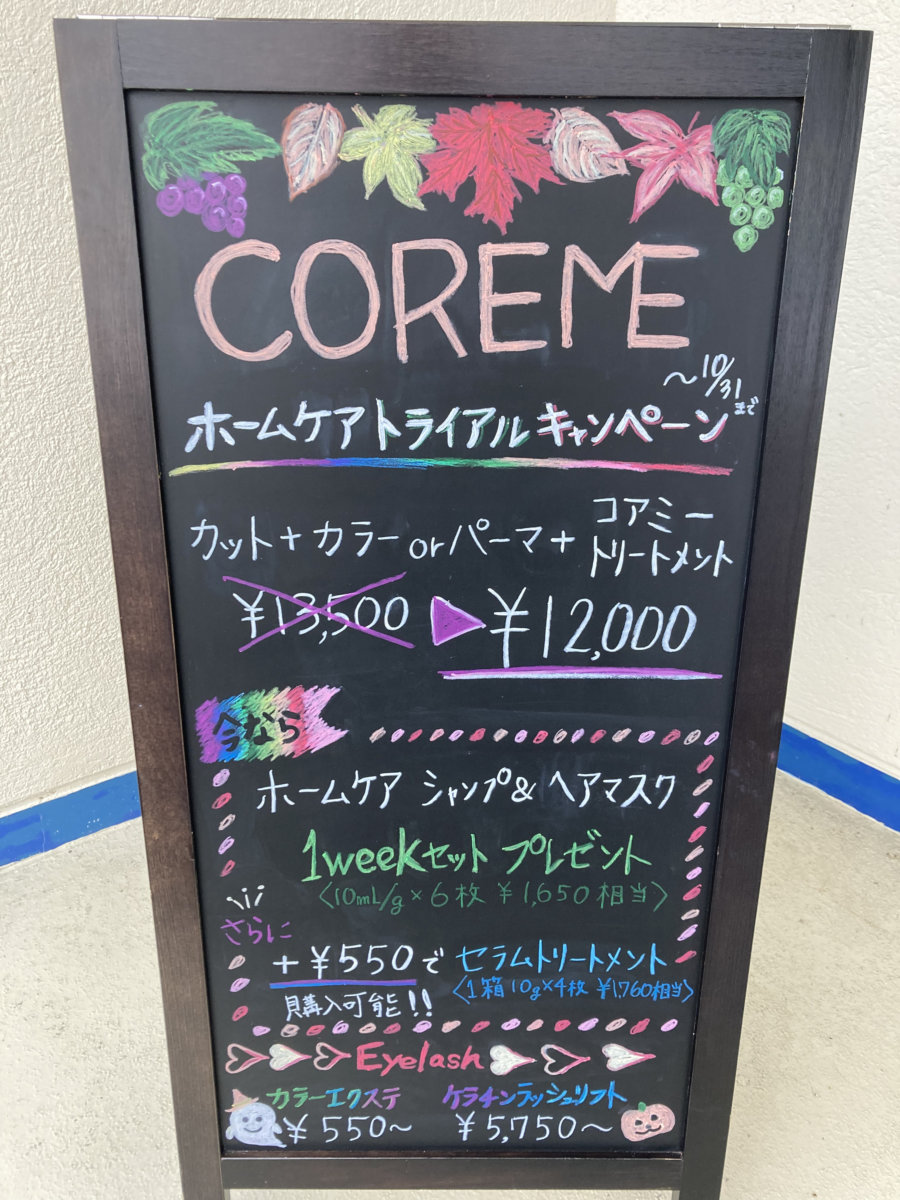 COREME
～10/31まで
ホームケアトライアルキャンペーン
カット+カラーorパーマ+コアミートリートメント
¥13,500 ▶ ¥12,000
今なら
ホームケア シャンプ&ヘアマスク
1weekセット プレゼント
〈10mL/g×6枚 ¥1,650相当〉
さらに
+¥550で セラムトリートメント
〈1箱 10g×4枚 ¥1,760相当〉
購入可能!!
Eyelash
カラーエクステ ケラチンラッシュリフト
¥550～ ¥5,750～